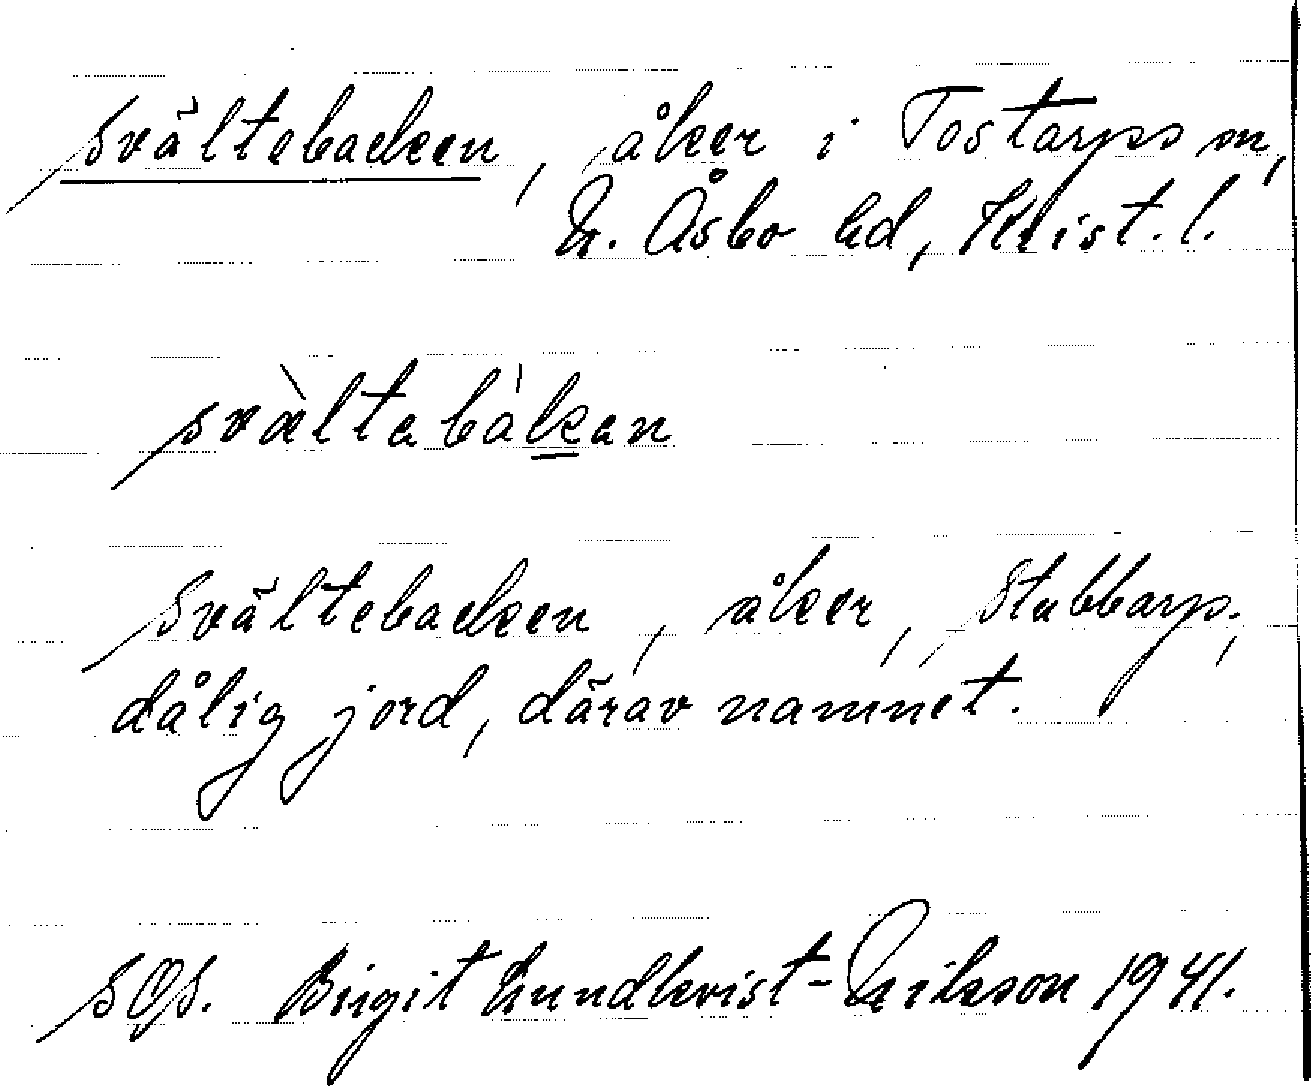 Svältebacken, åker i Tostarps sn,
N. Åsbo hd, Krist. l.
svæ̀ltabàkan
Svältebacken, åker, Stubbarp;
dålig jord, därav namnet.
Birgit Lundkvist-Erikson 1941.